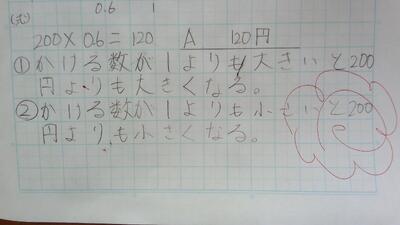 0.6 1
(式)
200×0.6=120 A 120円
①かける数が1よりも大きいと200
円よりも大きくなる。
②かける数が1よりも小さいと200
円よりも小さくなる。